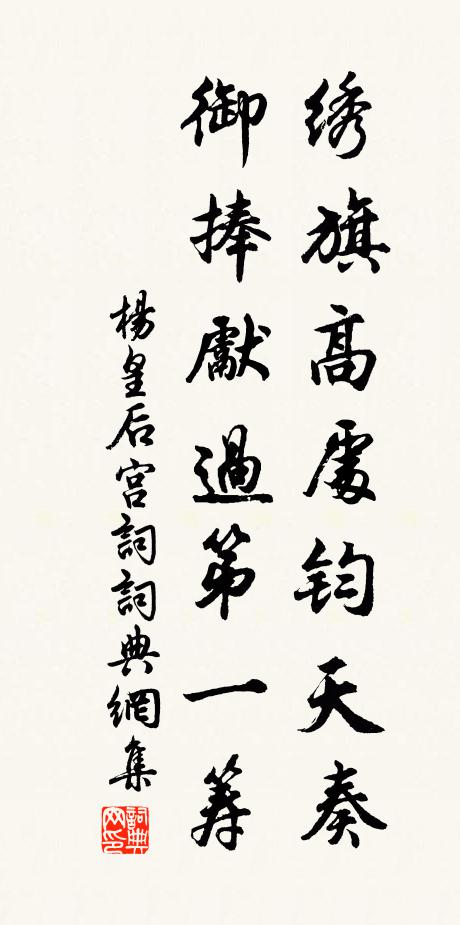 绣旗高處钧天奏
御捧獻過第一筹
楊皇后宫詞詞典網集
詞典网印